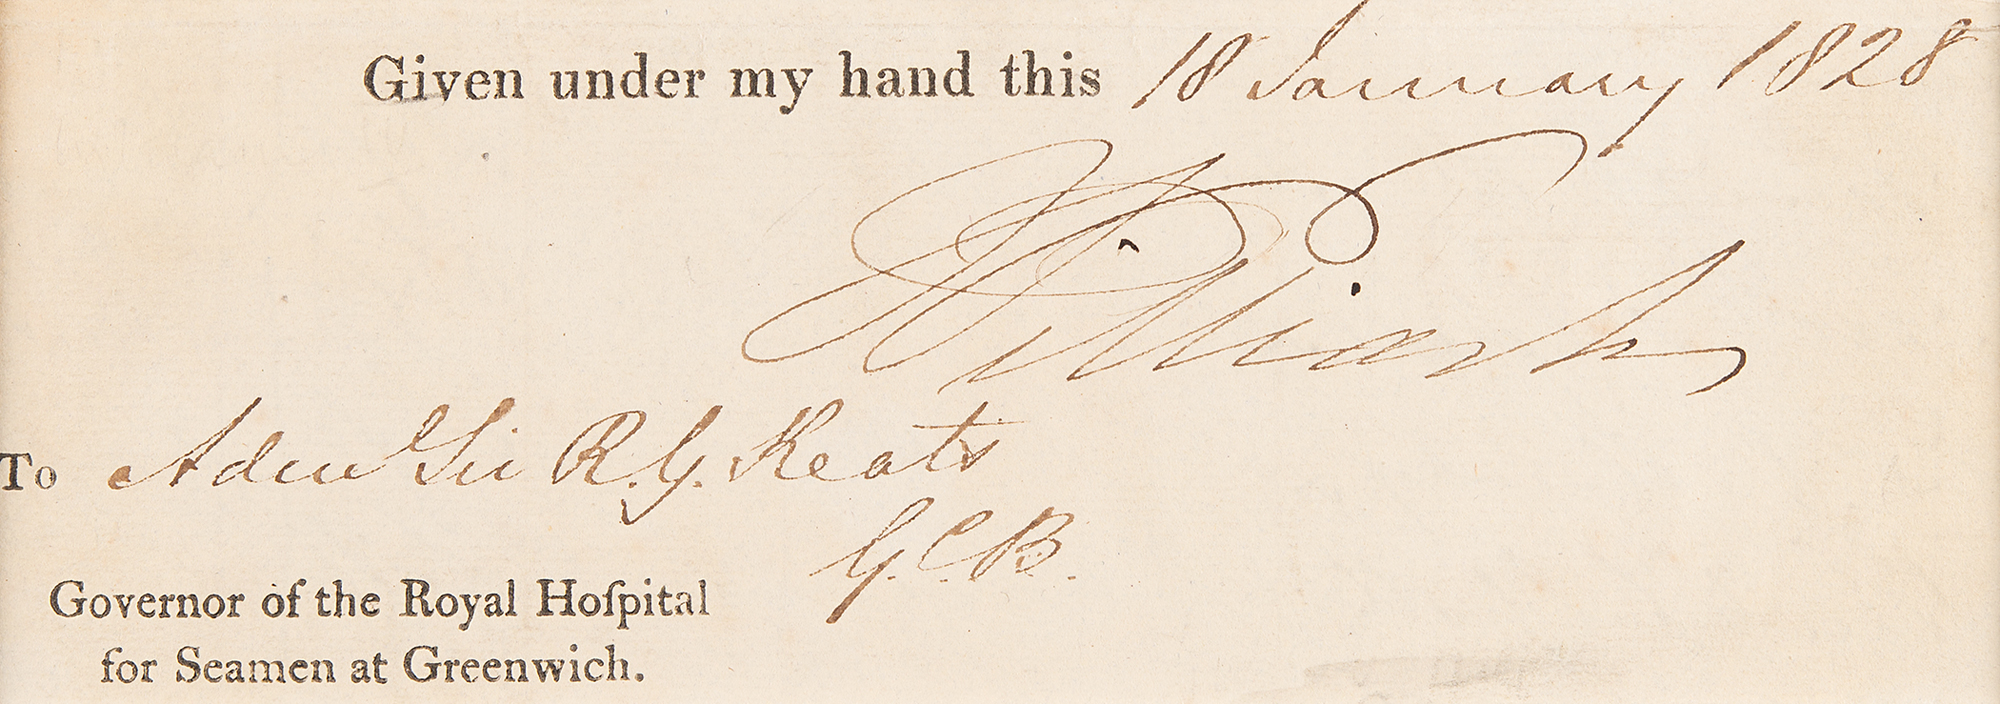 Given under my hand this 18 January 1828
William
To Adm Sir R. G. Keats
G.C.B.
Governor of the Royal Hoſpital
for Seamen at Greenwich.